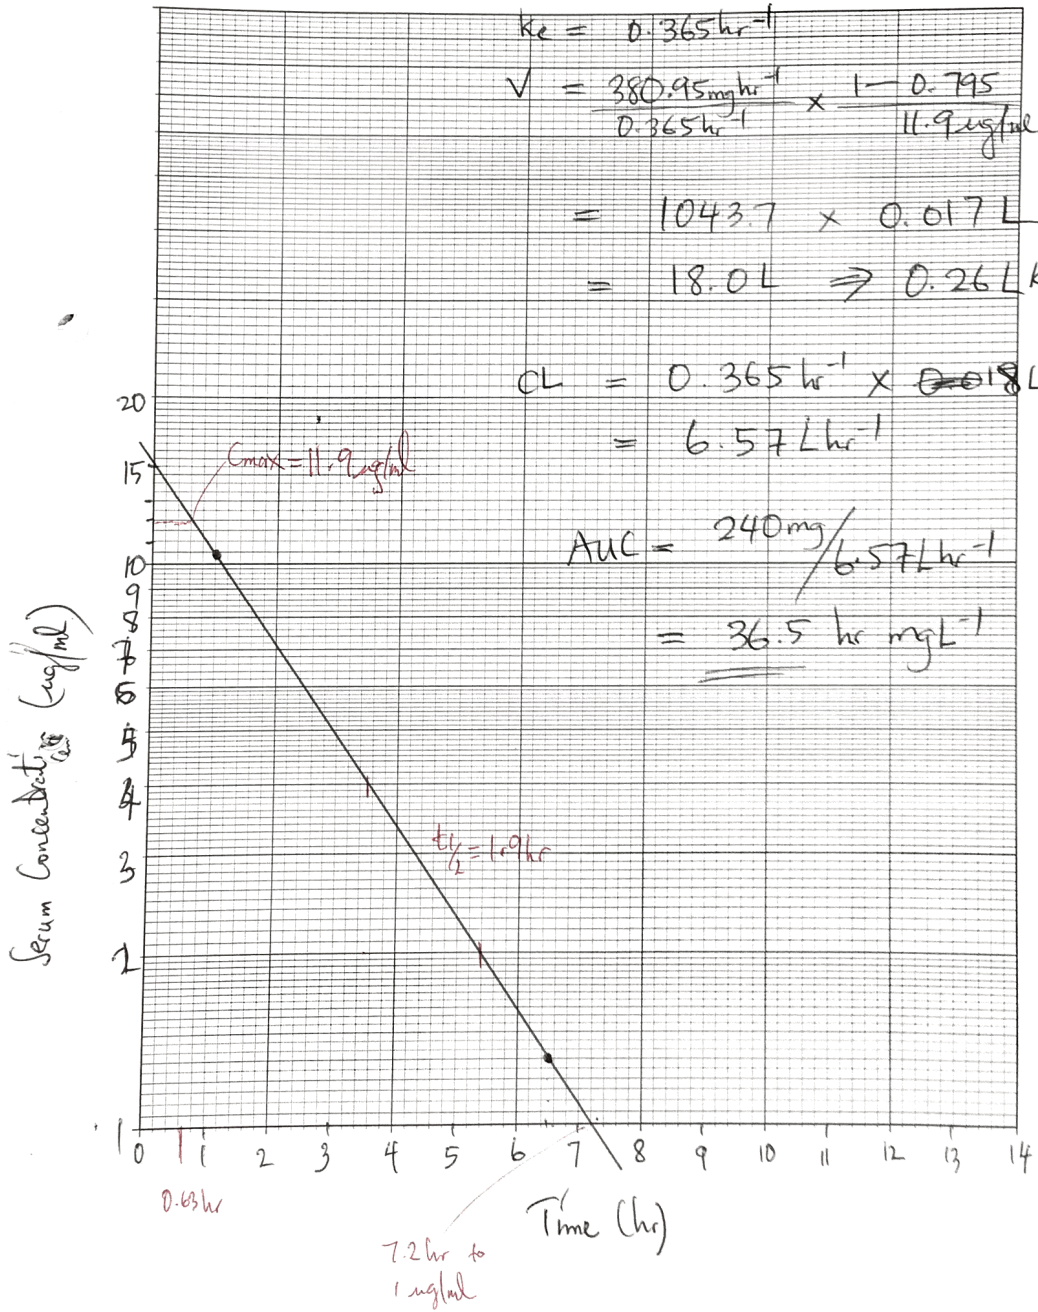 Ke = 0.365 hr⁻¹
V = 380.95 mg hr⁻¹ / 0.365 hr⁻¹ × 1 − 0.795 / 11.9 ug/ml
= 1043.7 × 0.017 L
= 18.0 L ⇒ 0.26 L
CL = 0.365 hr⁻¹ × 18 L
= 6.57 L hr⁻¹
AUC = 240 mg / 6.57 L hr⁻¹
= 36.5 hr mg L⁻¹
Cmax = 11.9 ug/ml
t½ = 1.9 hr
20
15
10
9
8
7
6
5
4
3
2
1
Serum (ug/ml)
0 1 2 3 4 5 6 7 8 9 10 11 12 13 14
0.63 hr
Time (hr)
7.2 hr to
1 ug/ml